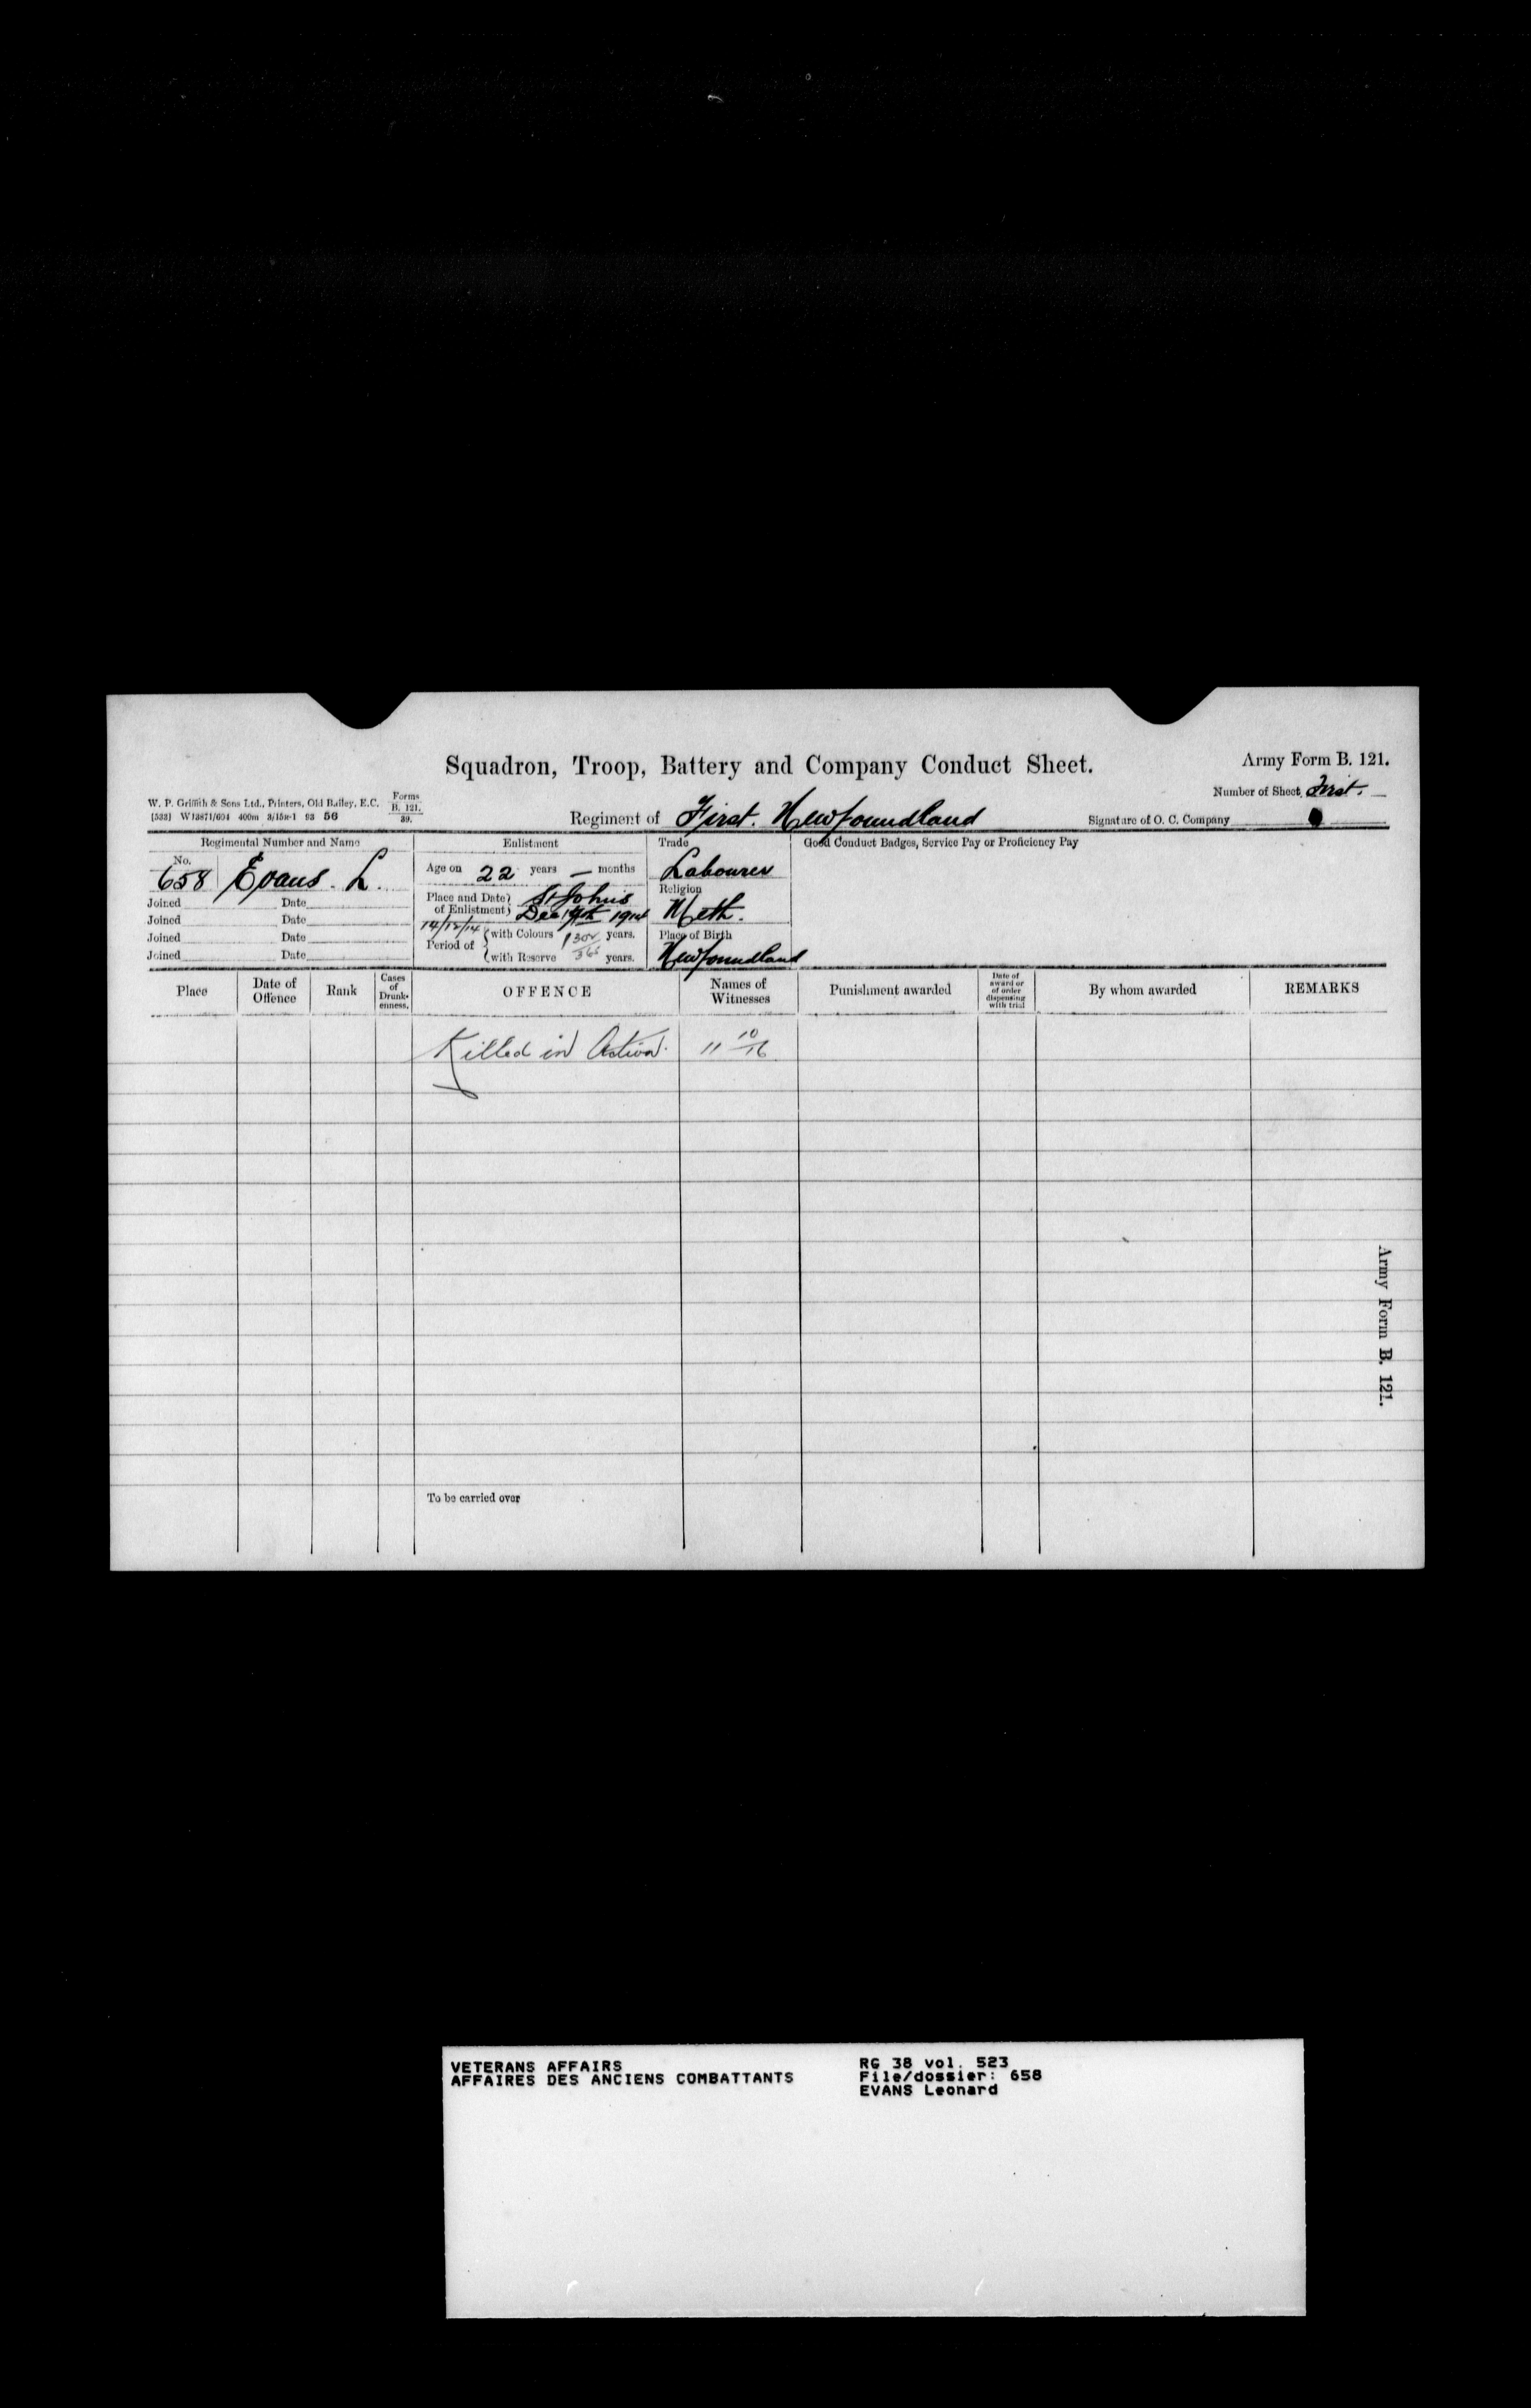 Squadron, Troop, Battery and Company Conduct Sheet.
Army Form B. 121.
Number of Sheet First.
W. P. Griffith & Sons Ltd., Printers, Old Bailey, E.C.
Forms B. 121. 39.
Regiment of First. Newfoundland
Signature of O. C. Company
Regimental Number and Name
Enlistment
Trade
Good Conduct Badges, Service Pay or Proficiency Pay
No.
658 Evans. L.
Age on 22 years — months
Labourer
Religion
Joined Date
Place and Date of Enlistment St Johns
Dec 1914
Meth.
Joined Date
14/12/14
Joined Date
Period of with Colours years.
Place of Birth
Joined Date
with Reserve years.
Newfoundland
Place
Date of Offence
Rank
Cases of Drunk-enness.
OFFENCE
Names of Witnesses
Punishment awarded
Date of award or of order dispensing with trial
By whom awarded
REMARKS
Killed in Action. 11 10/16
Army Form B. 121.
To be carried over
VETERANS AFFAIRS
AFFAIRES DES ANCIENS COMBATTANTS
RG 38 vol. 523
File/dossier: 658
EVANS Leonard